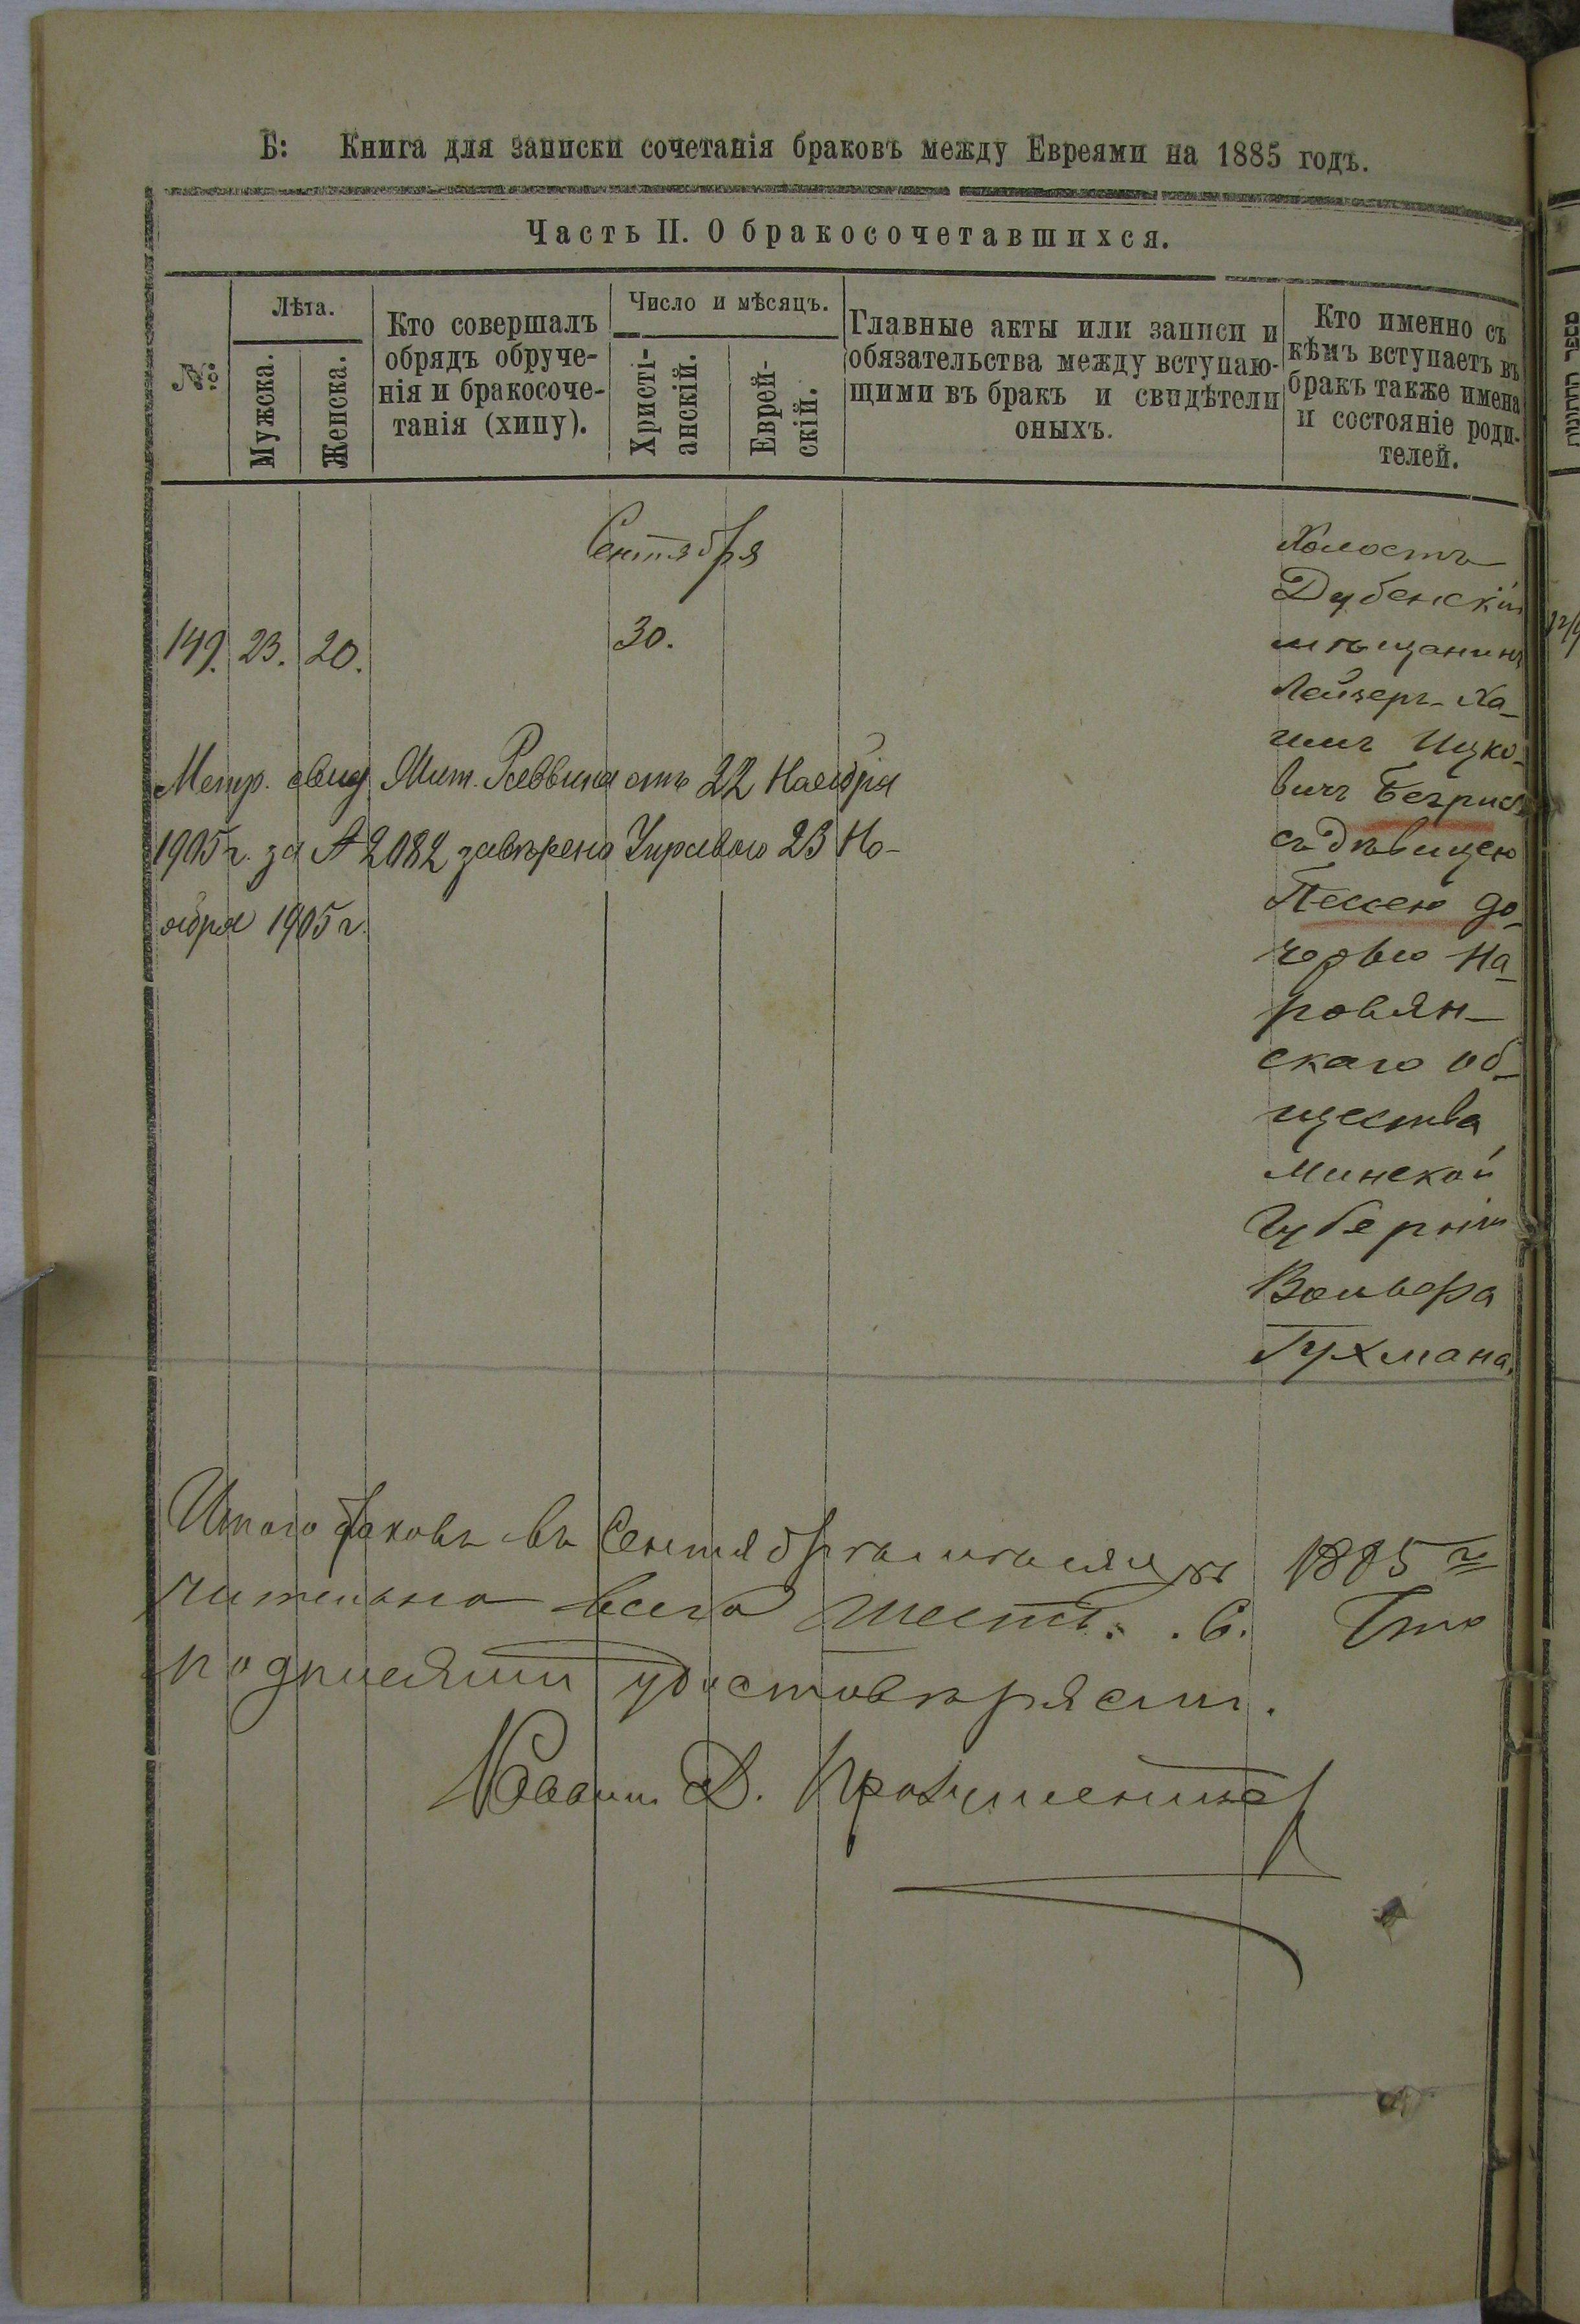 Б: Книга для записки сочетанія браковъ между Евреями на 1885 годъ.
Часть II. О бракосочетавшихся.
№:
Лѣта.
Мужска.
Женска.
Кто совершалъ
обрядъ обруче-
нія и бракосоче-
танія (хипу).
Число и мѣсяцъ.
Христі-
анскій.
Еврей-
скій.
Главные акты или записи и
обязательства между вступаю-
щими въ бракъ и свидѣтели
оныхъ.
Кто именно съ
кѣмъ вступаетъ въ
бракъ также имена
и состояніе роди-
телей.
Сентября
149. 23. 20. 30.
Холостъ
Дубенскій
мѣщанинъ
Лейзеръ-Ха-
имъ Ицко-
вичъ
съ дѣвицею
Песею до-
черью На-
ровлян-
скаго об-
щества
Минской
Губерніи
Вольфа
Гухмана.
Метр. свид. Жит. Раввина отъ 22 Ноября
1905 г. за № 2082 завѣрено Управою 23 Но-
ября 1905 г.
Итого браковъ въ Сентябрѣ мѣсяцѣ 1885 г
всего шесть. . 6. Что
подписями удостовѣряемъ.
Раввинъ